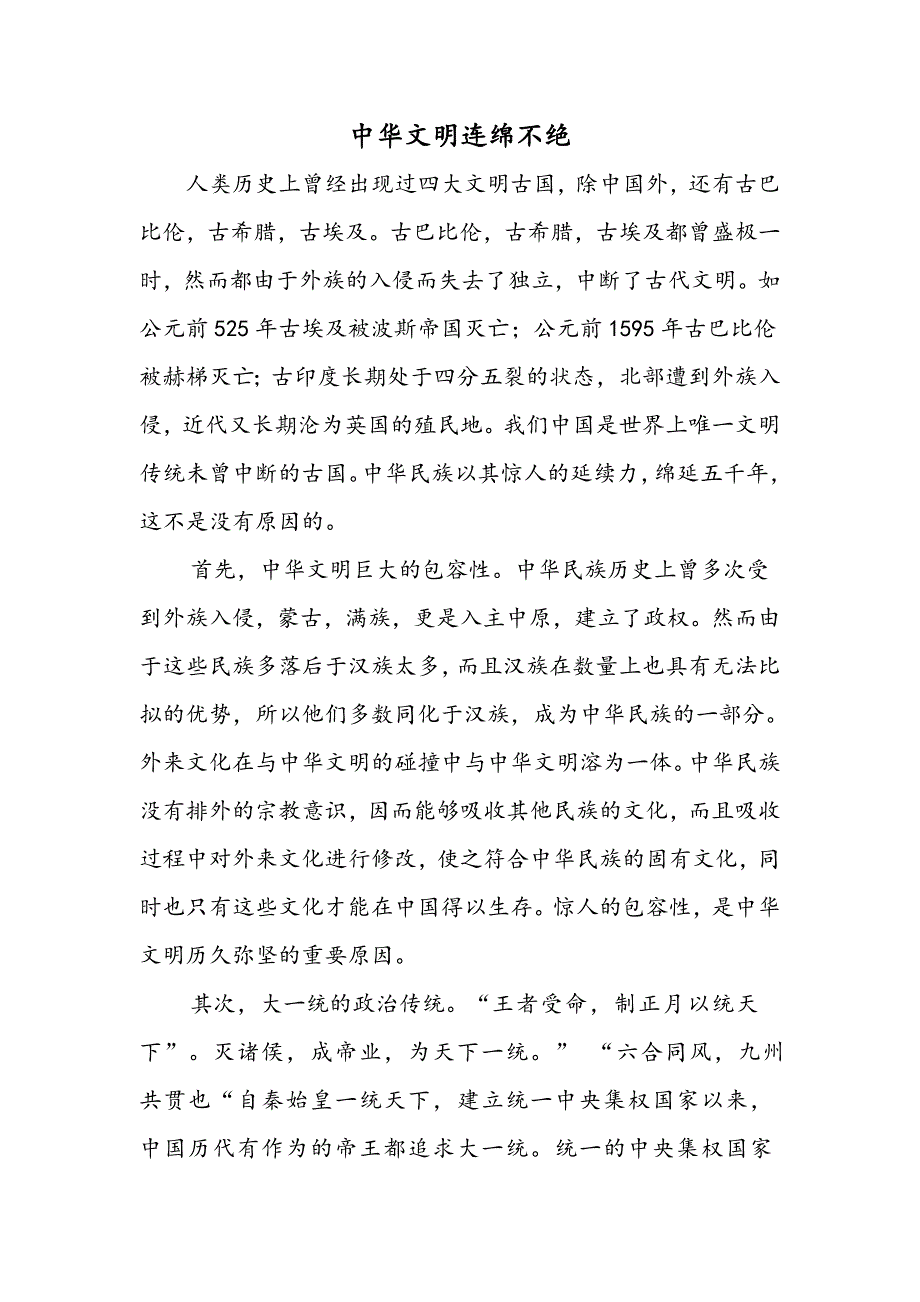 中华文明连绵不绝
人类历史上曾经出现过四大文明古国，除中国外，还有古巴
比伦，古希腊，古埃及。古巴比伦，古希腊，古埃及都曾盛极一
时，然而都由于外族的入侵而失去了独立，中断了古代文明。如
公元前525年古埃及被波斯帝国灭亡；公元前1595年古巴比伦
被赫梯灭亡；古印度长期处于四分五裂的状态，北部遭到外族入
侵，近代又长期沦为英国的殖民地。我们中国是世界上唯一文明
传统未曾中断的古国。中华民族以其惊人的延续力，绵延五千年，
这不是没有原因的。
首先，中华文明巨大的包容性。中华民族历史上曾多次受
到外族入侵，蒙古，满族，更是入主中原，建立了政权。然而由
于这些民族多落后于汉族太多，而且汉族在数量上也具有无法比
拟的优势，所以他们多数同化于汉族，成为中华民族的一部分。
外来文化在与中华文明的碰撞中与中华文明溶为一体。中华民族
没有排外的宗教意识，因而能够吸收其他民族的文化，而且吸收
过程中对外来文化进行修改，使之符合中华民族的固有文化，同
时也只有这些文化才能在中国得以生存。惊人的包容性，是中华
文明历久弥坚的重要原因。
其次，大一统的政治传统。“王者受命，制正月以统天
下”。灭诸侯，成帝业，为天下一统。” “六合同风，九州
共贯也“自秦始皇一统天下，建立统一中央集权国家以来，
中国历代有作为的帝王都追求大一统。统一的中央集权国家